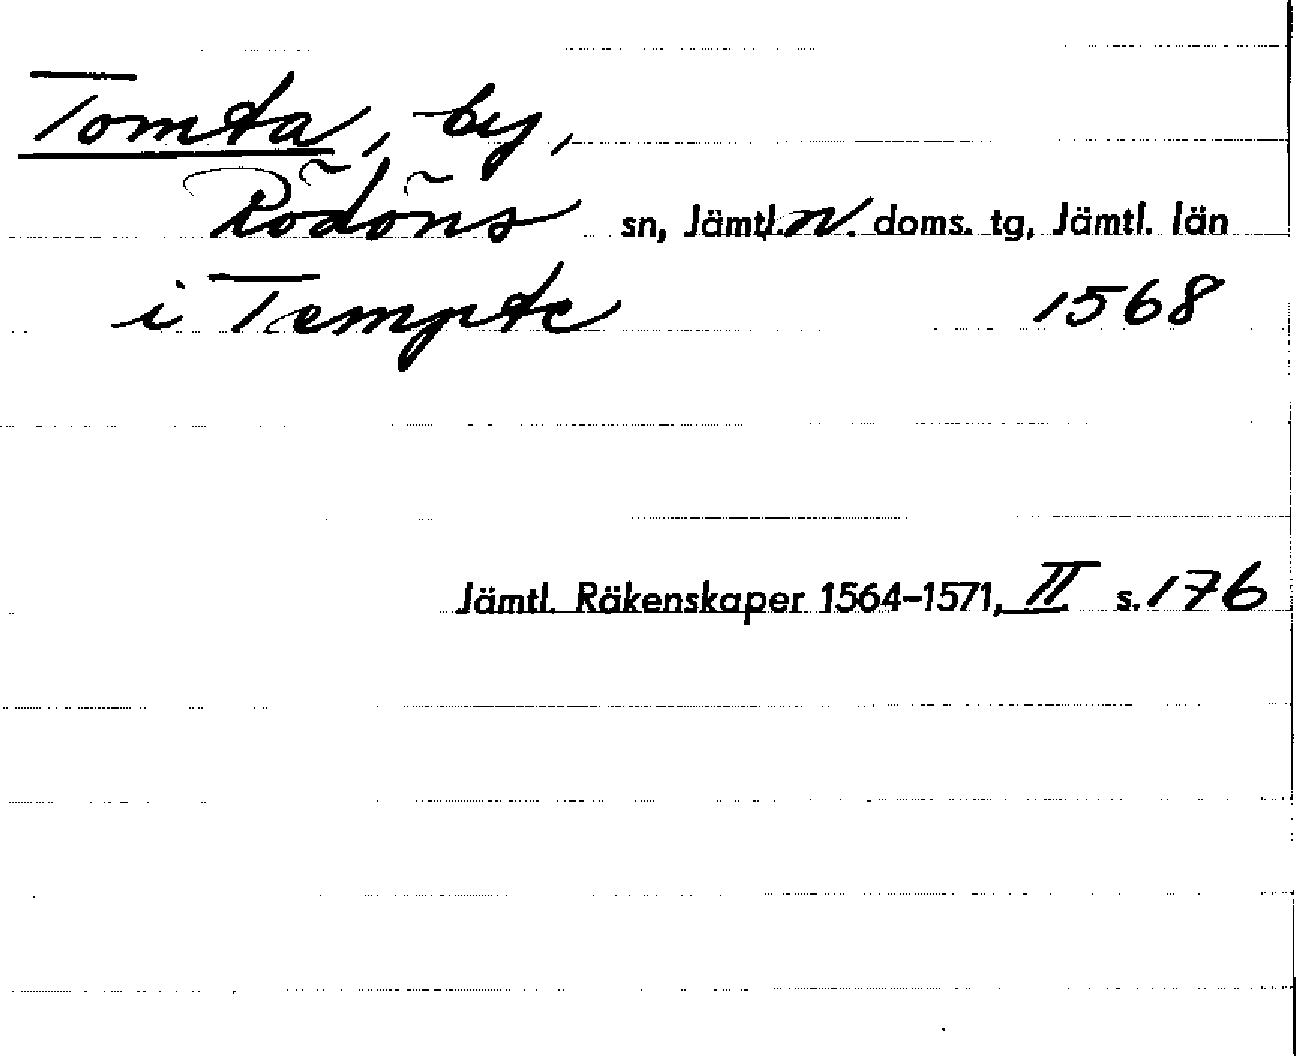 Tomta, by,
Rödöns sn, Jämtl. N. doms. tg, Jämtl. län
i Tempte 1568
Jämtl. Räkenskaper 1564-1571, II s. 176